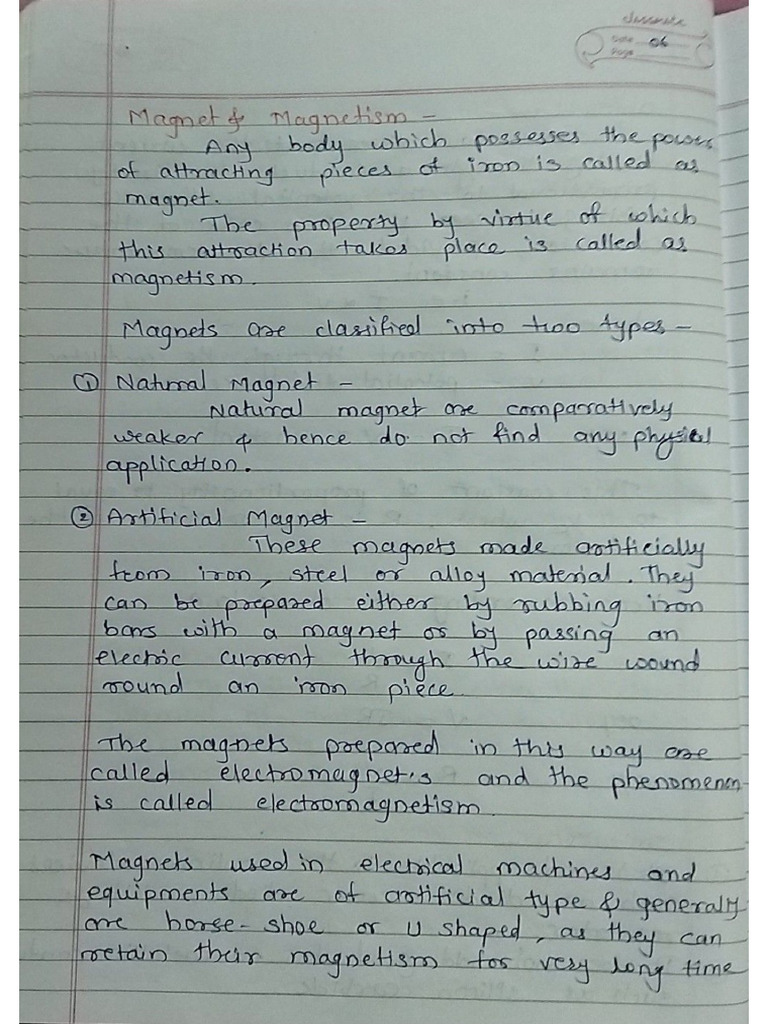 classmate
Date 06
Page
Magnet & Magnetism -
Any body which possesses the power
of attracting pieces of iron is called as
magnet.
The property by virtue of which
this attraction takes place is called as
magnetism.
Magnets are classified into two types -
① Natural Magnet -
Natural magnet are comparratively
weaker & hence do not find any physical
application.
② Artificial Magnet -
These magnets made artificially
from iron, steel or alloy material. They
can be prepared either by rubbing iron
bars with a magnet or by passing an
electric current through the wire wound
round an iron piece.
The magnets prepared in this way are
called electromagnets and the phenomenon
is called electromagnetism.
Magnets used in electrical machines and
equipments are of artificial type & generally
are horse-shoe or U shaped, as they can
retain their magnetism for very long time